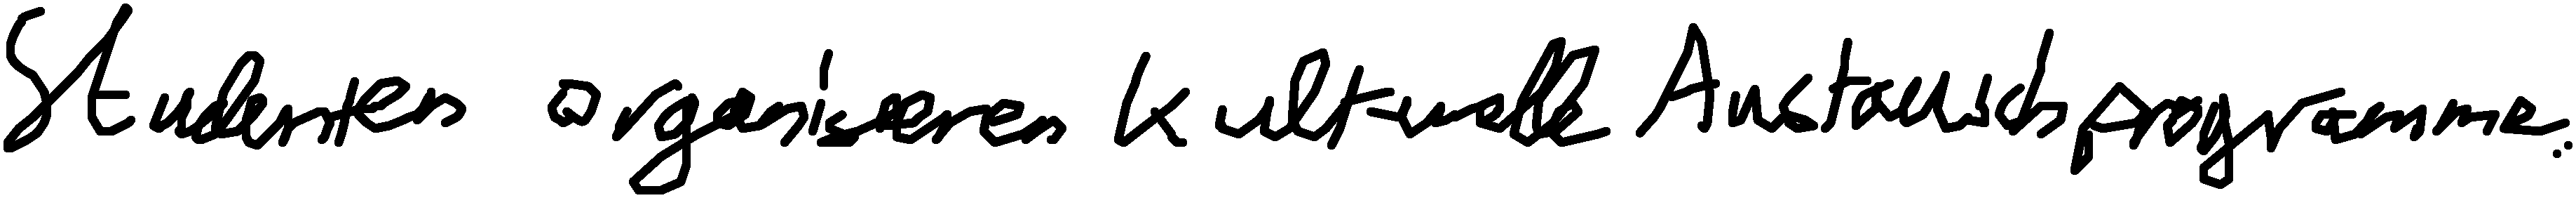 Studenten organisieren kulturelle Austauschprogramme.